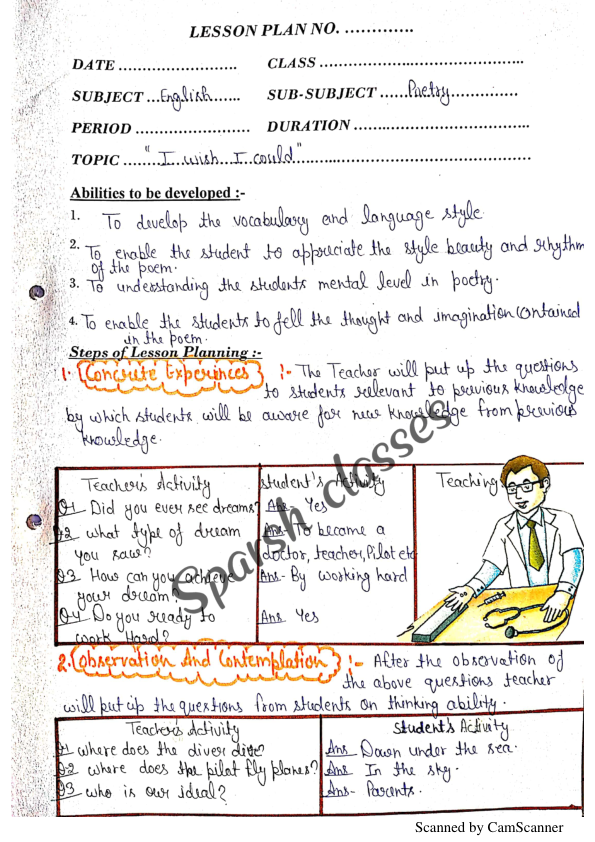 LESSON PLAN NO. .............
DATE ........................ CLASS ..........................................
SUBJECT ...English...... SUB-SUBJECT ......Poetry..............
PERIOD ....................... DURATION ...................................
TOPIC ......"I wish I could"................................................
Abilities to be developed :-
1. To develop the vocabulary and language style
2. To enable the student to appreciate the style beauty and rhythm
of the poem.
3. To understanding the students mental level in poetry.
4. To enable the students to fell the thought and imagination contained
in the poem.
Steps of Lesson Planning :-
1. Concrete Experinces :- The Teacher will put up the questions
to students relevant to previous knowledge
by which students will be aware for new knowledge from previous
knowledge.
Teacher's Activity Student's Activity Teaching
Q1 Did you ever see dreams? Ans- Yes
Q2 what type of dream Ans- To became a
you saw? doctor, teacher, Pilot etc
Q3 How can you achieve Ans- By working hard
your dream?
Q4 Do you ready to Ans Yes
work Hard?
Sparsh classes
2. Observation And Contemplation :- After the observation of
the above questions teacher
will put up the questions from students on thinking ability.
Teacher's Activity Student's Activity
Q1 where does the diver dive? Ans Down under the sea.
Q2 where does the pilot fly planes? Ans In the sky.
Q3 who is our ideal? Ans- Parents.
Scanned by CamScanner